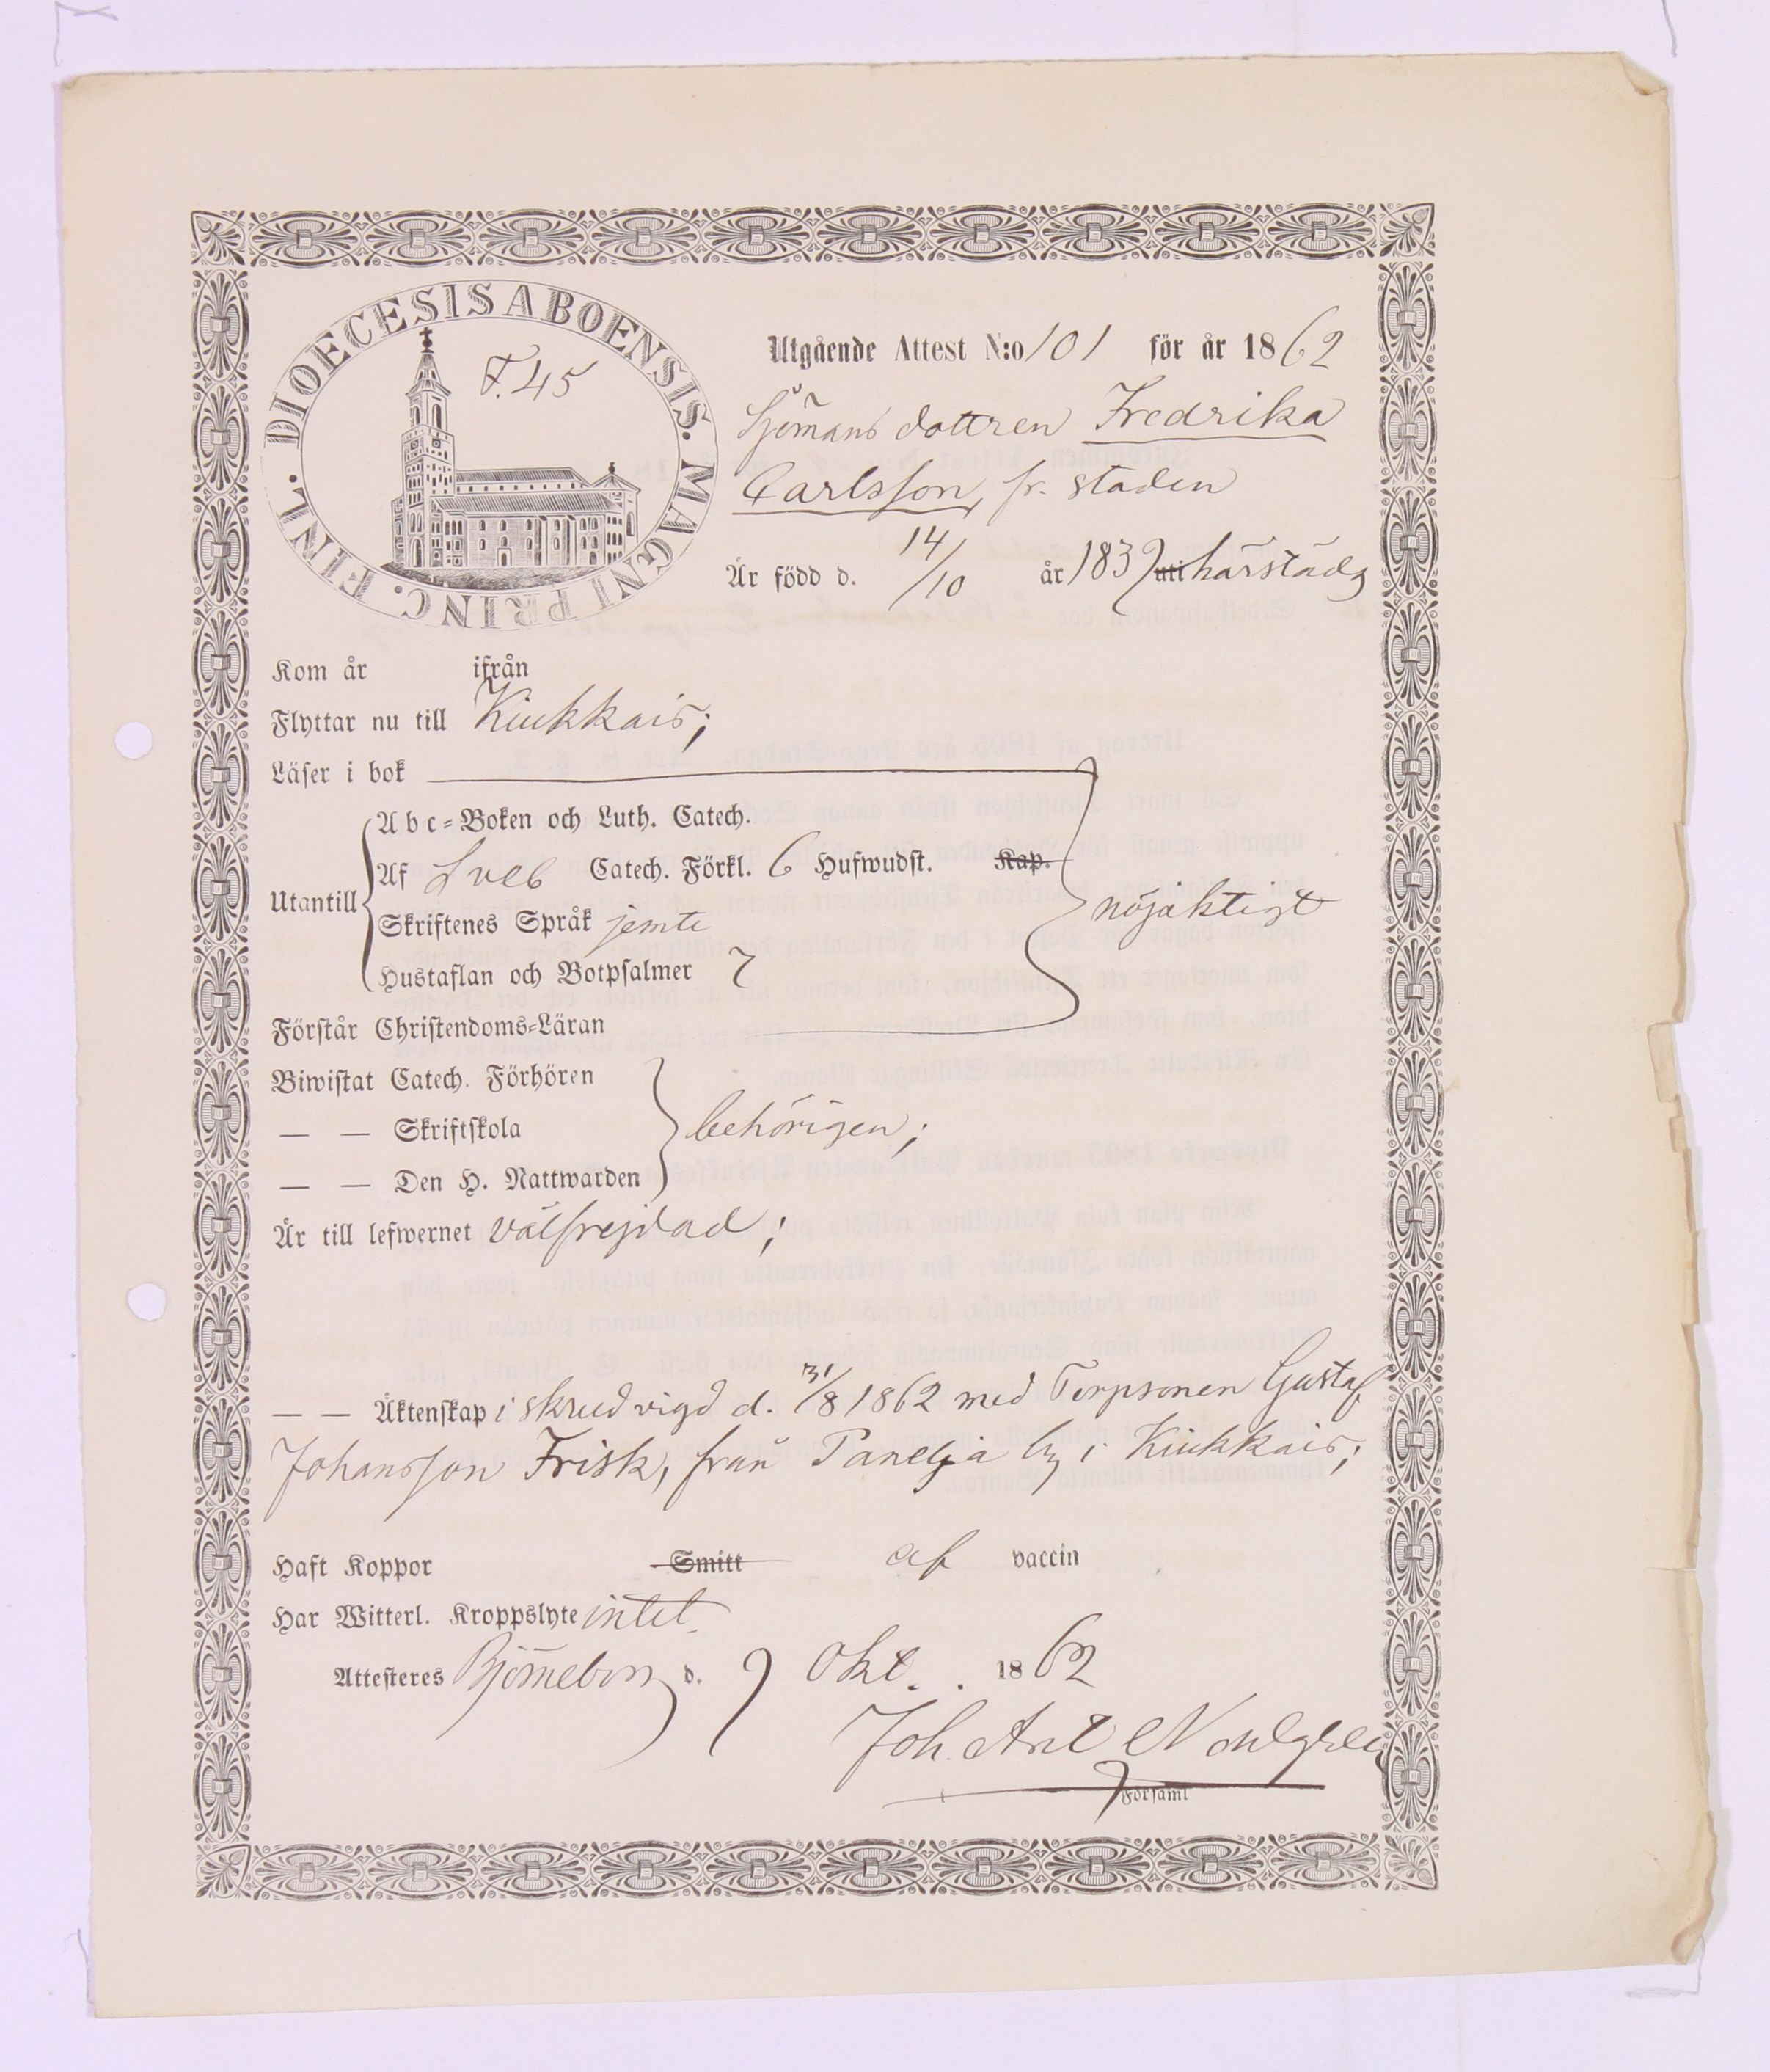 DIOECESIS ABOENSIS. MAGNI PRINC. FINL.
F. 45
Utgående Attest N:o 101 för år 1862
Sjömans dottren Fredrika
Carlsson, fr. staden
Är född d. 14/10 år 1839 uti härstädz
Kom år ifrån
Flyttar nu till Kiukkais;
Läser i bok
Abc-Boken och Luth. Catech.
Af Sveb Catech. Förkl. 6 Hufwudst. Kap.
Utantill
Skriftenes Språk jemte
nöjaktigt
Hustaflan och Botpsalmer 7
Förstår Christendoms-Läran
Biwistat Catech. Förhören
— — Skriftskola
behörigen;
— — Den H. Nattwarden
Är till lefwernet välfrejdad;
— — Äktenskap i skrud vigd d. 31/8 1862 med Torpsonen Gustaf
Johansson Frisk, från Panelia by i Kiukkais;
Haft Koppor Smitt af vaccin
Har Witterl. Kroppslyte intet
Attesteres Björneborg d. 9 Okt. 1862
Joh. Ant.
Församl